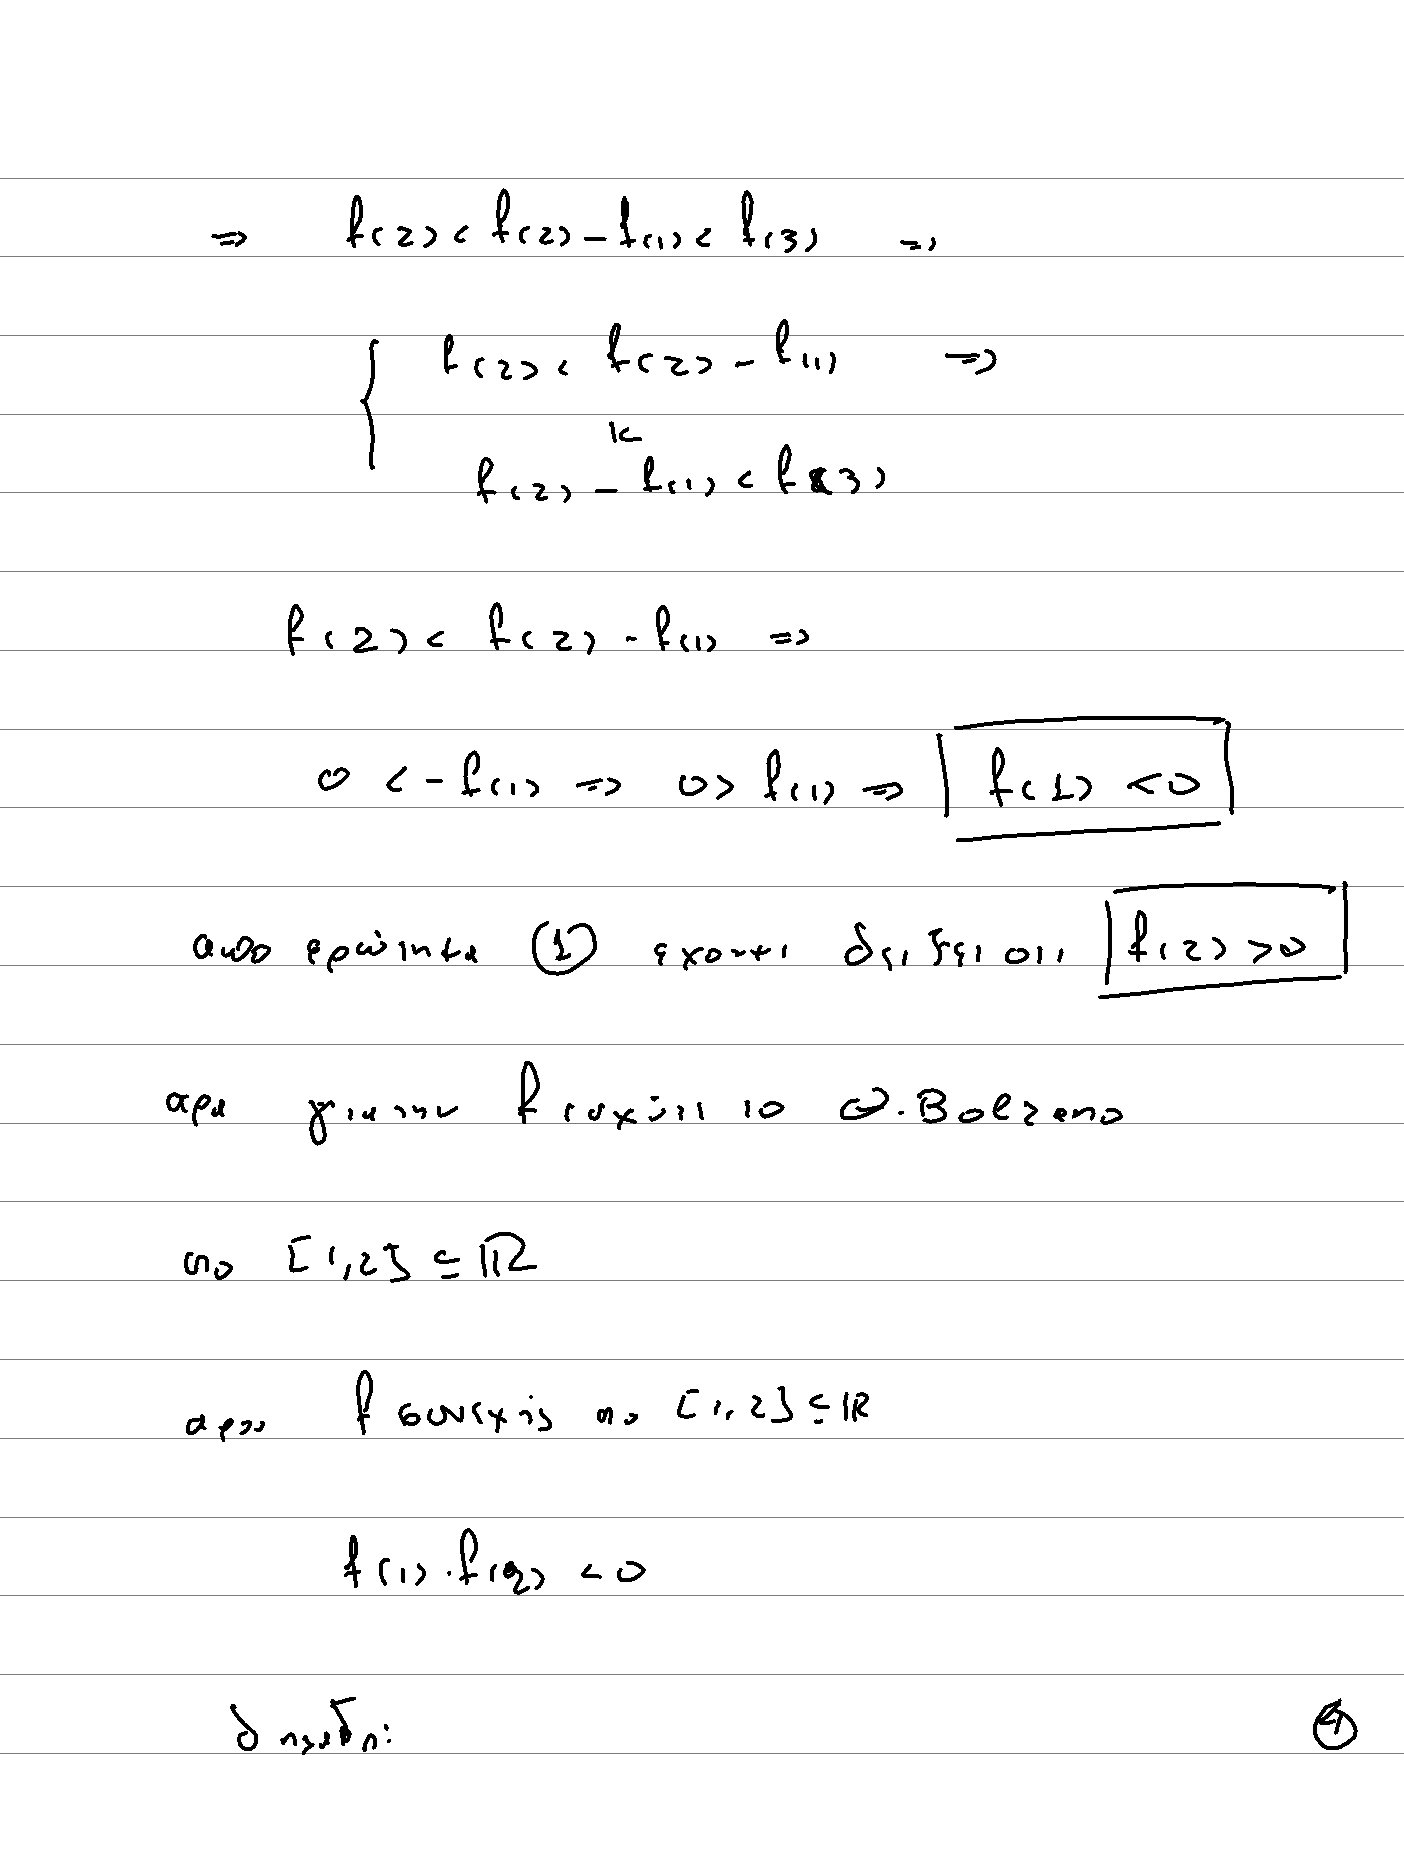 ⇒ f(2) < f(2) - f(1) < f(3) ⇒
f(2) < f(2) - f(1) ⇒
κ
f(2) - f(1) < f(3)
f(2) < f(2) - f(1) ⇒
0 < - f(1) ⇒ 0 > f(1) ⇒ f(1) < 0
απο ερώτημα ① εχουμε δείξει οτι f(2) > 0
αρα για την f ισχύει το Θ. Bolzano
στο [1,2] ⊆ ℝ
αρα f συνεχής στο [1,2] ⊆ ℝ
f(1) · f(2) < 0
δηλαδή:
④